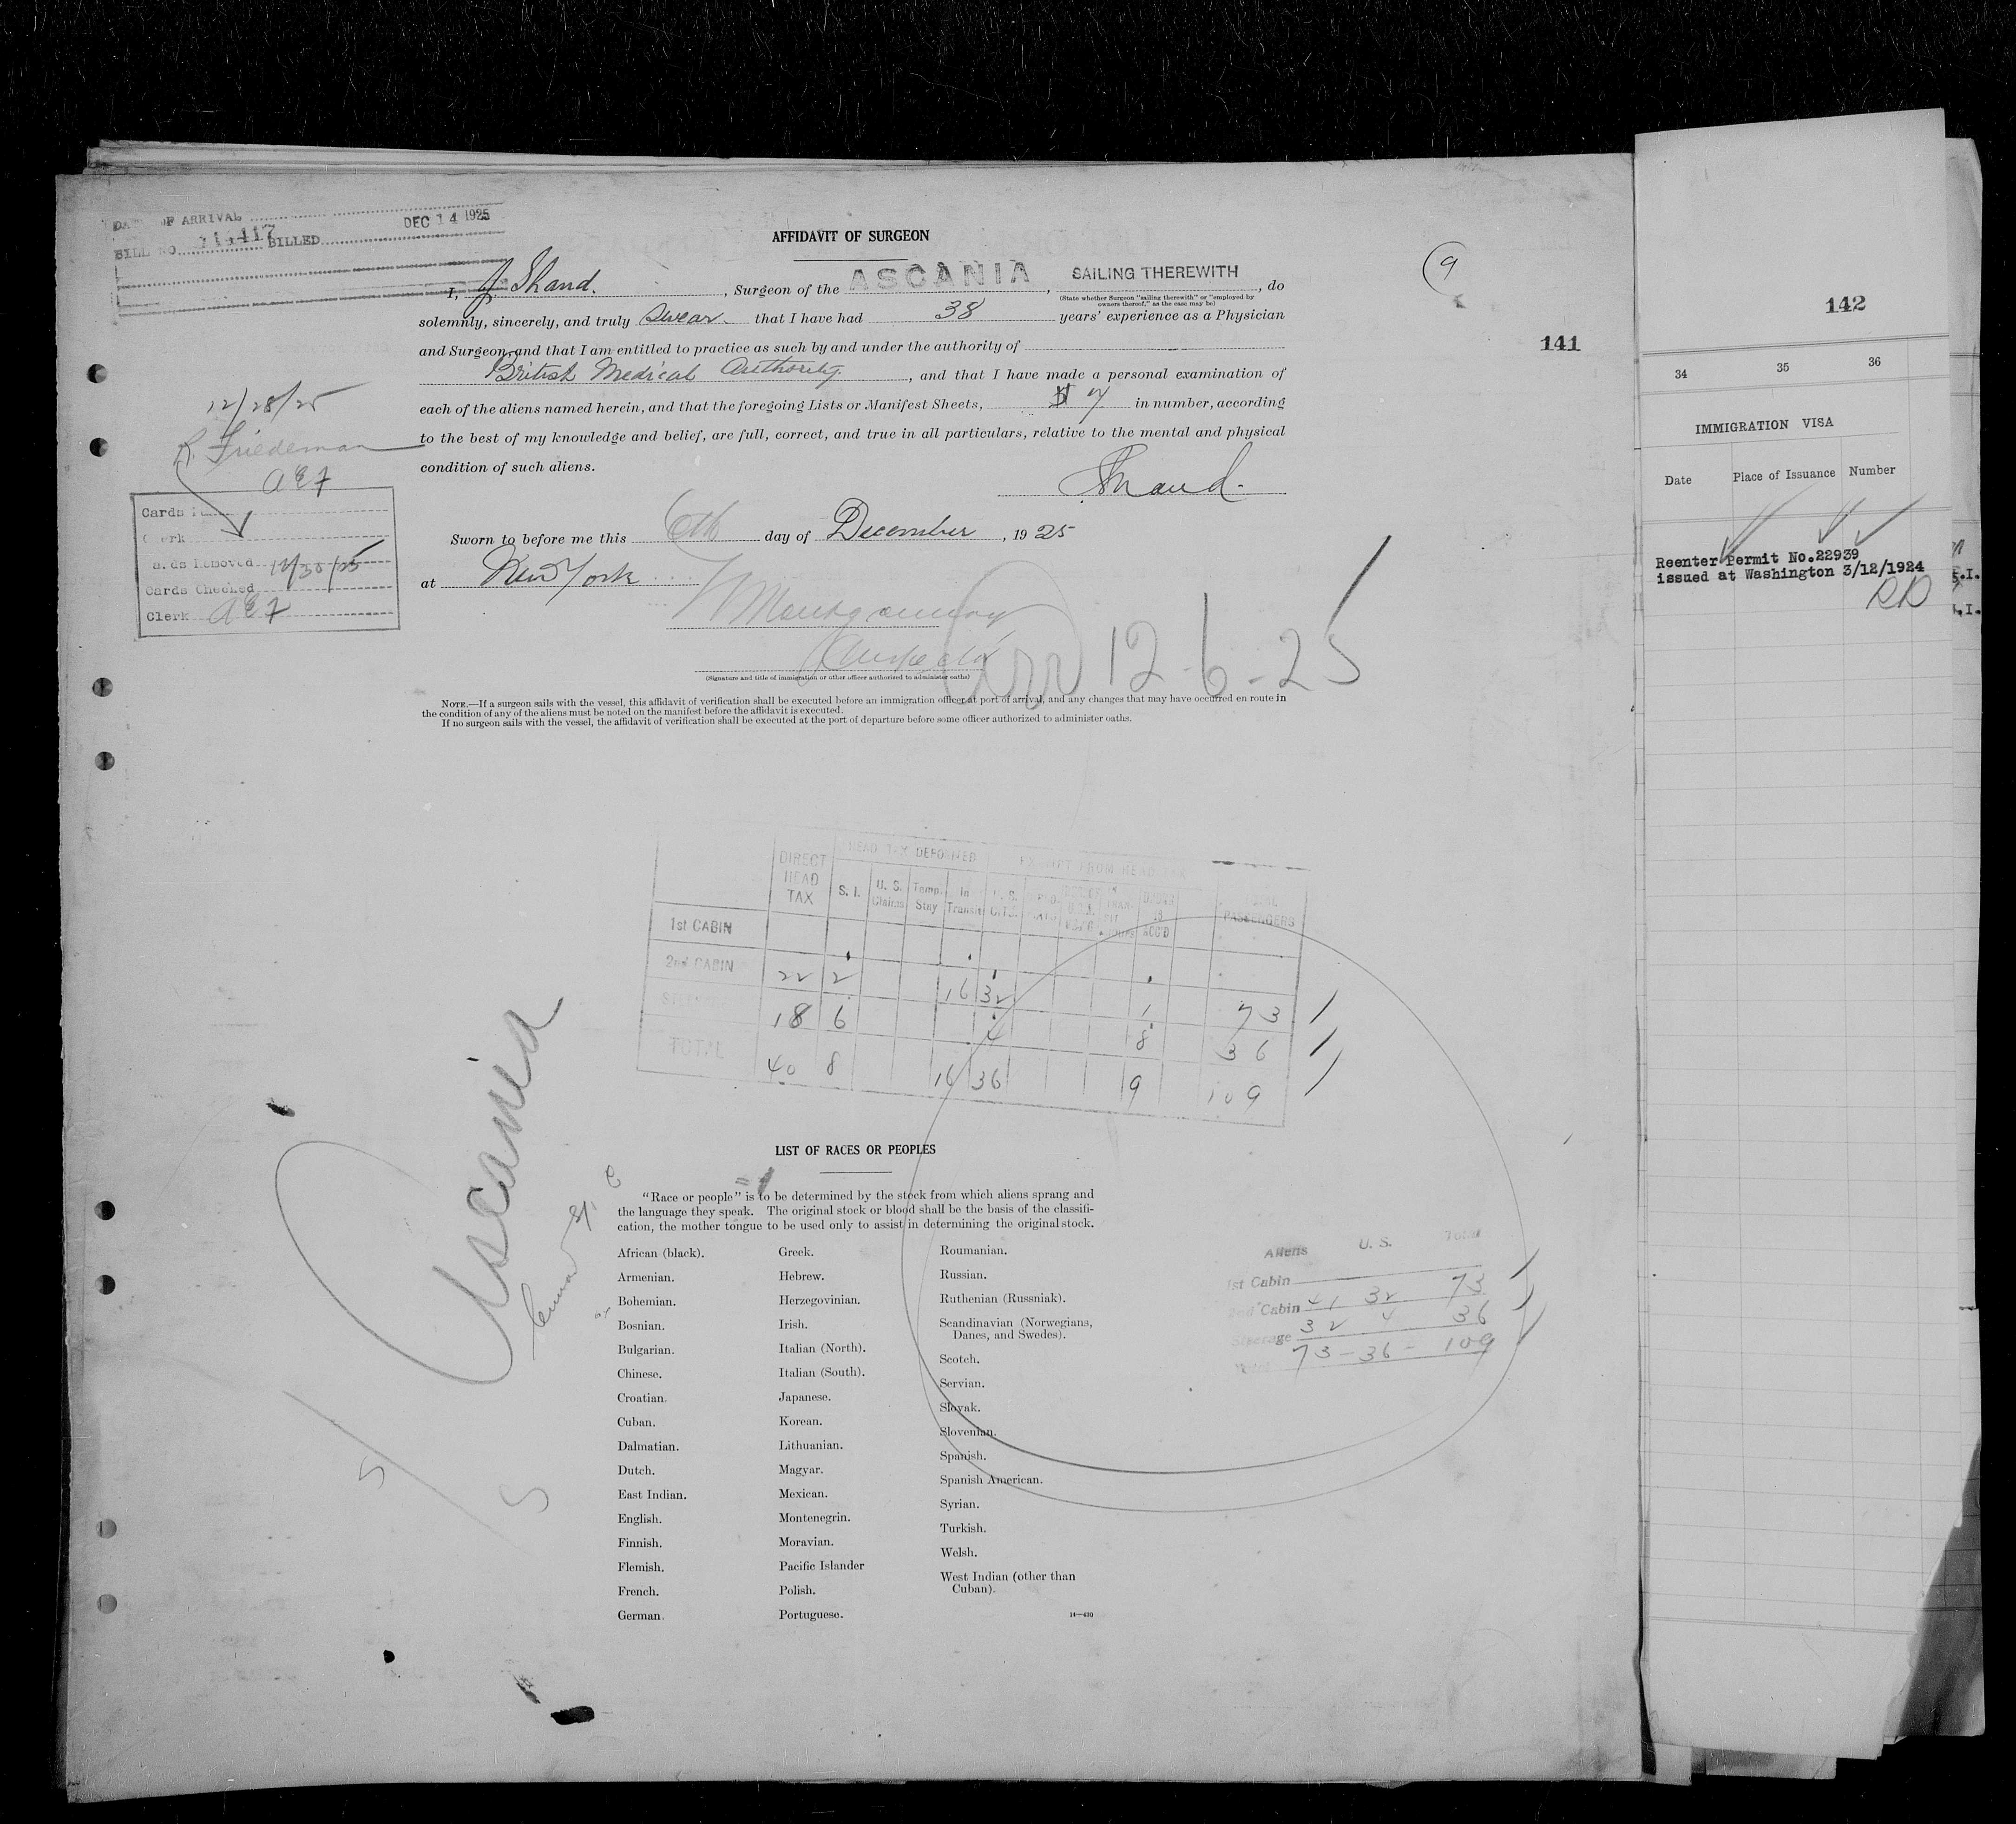 OF ARRIVAL DEC 14 1925
BILL NO. BILLED
AFFIDAVIT OF SURGEON
9
I, J Shand. , Surgeon of the ASCANIA , SAILING THEREWITH , do
(State whether Surgeon "sailing therewith" or "employed by owners thereof," as the case may be)
solemnly, sincerely, and truly swear that I have had 38 years' experience as a Physician
and Surgeon and that I am entitled to practice as such by and under the authority of
British Medical Authority , and that I have made a personal examination of
each of the aliens named herein, and that the foregoing Lists or Manifest Sheets, 7 in number, according
to the best of my knowledge and belief, are full, correct, and true in all particulars, relative to the mental and physical
condition of such aliens.
Shand.
Sworn to before me this 6th day of December , 19 25
at New York
Montgomery
Inspector
(Signature and title of immigration or other officer authorized to administer oaths)
Arr 12-6-25
NOTE.—If a surgeon sails with the vessel, this affidavit of verification shall be executed before an immigration officer at port of arrival, and any changes that may have occurred en route in
the condition of any of the aliens must be noted on the manifest before the affidavit is executed.
If no surgeon sails with the vessel, the affidavit of verification shall be executed at the port of departure before some officer authorized to administer oaths.
12/28/25
R. Friedeman
Cards
Removed 12/30/25
Cards Checked
Clerk
141
HEAD TAX DEFERRED EXEMPT FROM HEAD TAX
DIRECT HEAD TAX S. I. U. S. Claims Temp. Stay In Transit PASSENGERS
1st CABIN
2nd CABIN 22 2 16 32 1 73
18 6 4 8 36
TOTAL 40 8 16 36 9 109
Ascania
LIST OF RACES OR PEOPLES
"Race or people" is to be determined by the stock from which aliens sprang and
the language they speak. The original stock or blood shall be the basis of the classifi-
cation, the mother tongue to be used only to assist in determining the original stock.
African (black).
Armenian.
Bohemian.
Bosnian.
Bulgarian.
Chinese.
Croatian.
Cuban.
Dalmatian.
Dutch.
East Indian.
English.
Finnish.
Flemish.
French.
German.
Greek.
Hebrew.
Herzegovinian.
Irish.
Italian (North).
Italian (South).
Japanese.
Korean.
Lithuanian.
Magyar.
Mexican.
Montenegrin.
Moravian.
Pacific Islander
Polish.
Portuguese.
Roumanian.
Russian.
Ruthenian (Russniak).
Scandinavian (Norwegians,
Danes, and Swedes).
Scotch.
Servian.
Slovak.
Slovenian.
Spanish.
Spanish American.
Syrian.
Turkish.
Welsh.
West Indian (other than
Cuban).
14—430
Aliens U. S. Total
1st Cabin
2nd Cabin 41 32 73
Steerage 32 4 36
Total 73 - 36 - 109
142
34 35 36
IMMIGRATION VISA
Date Place of Issuance Number
Reenter Permit No.22939
issued at Washington 3/12/1924